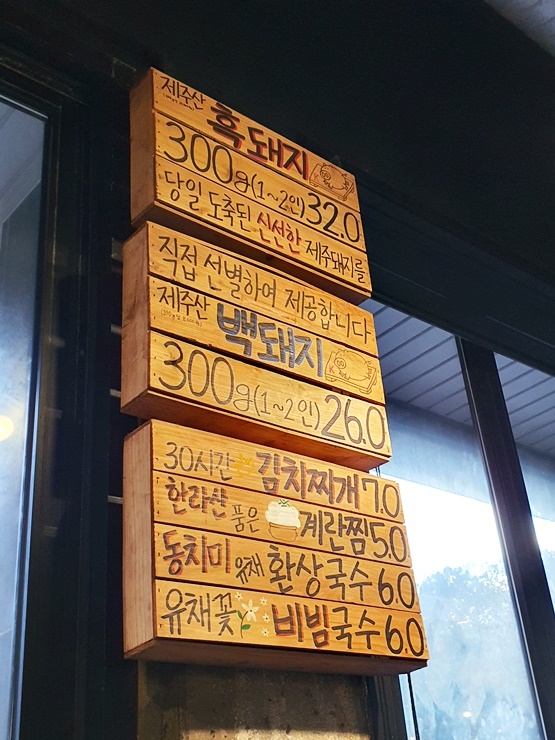 제주산 흑돼지
300g(1~2인) 32.0
당일 도축된 신선한 제주돼지를
직접 선별하여 제공합니다
제주산 백돼지
300g(1~2인) 26.0
30시간 김치찌개 7.0
한라산 품은 계란찜 5.0
동치미 유채 환상국수 6.0
유채꽃 비빔국수 6.0